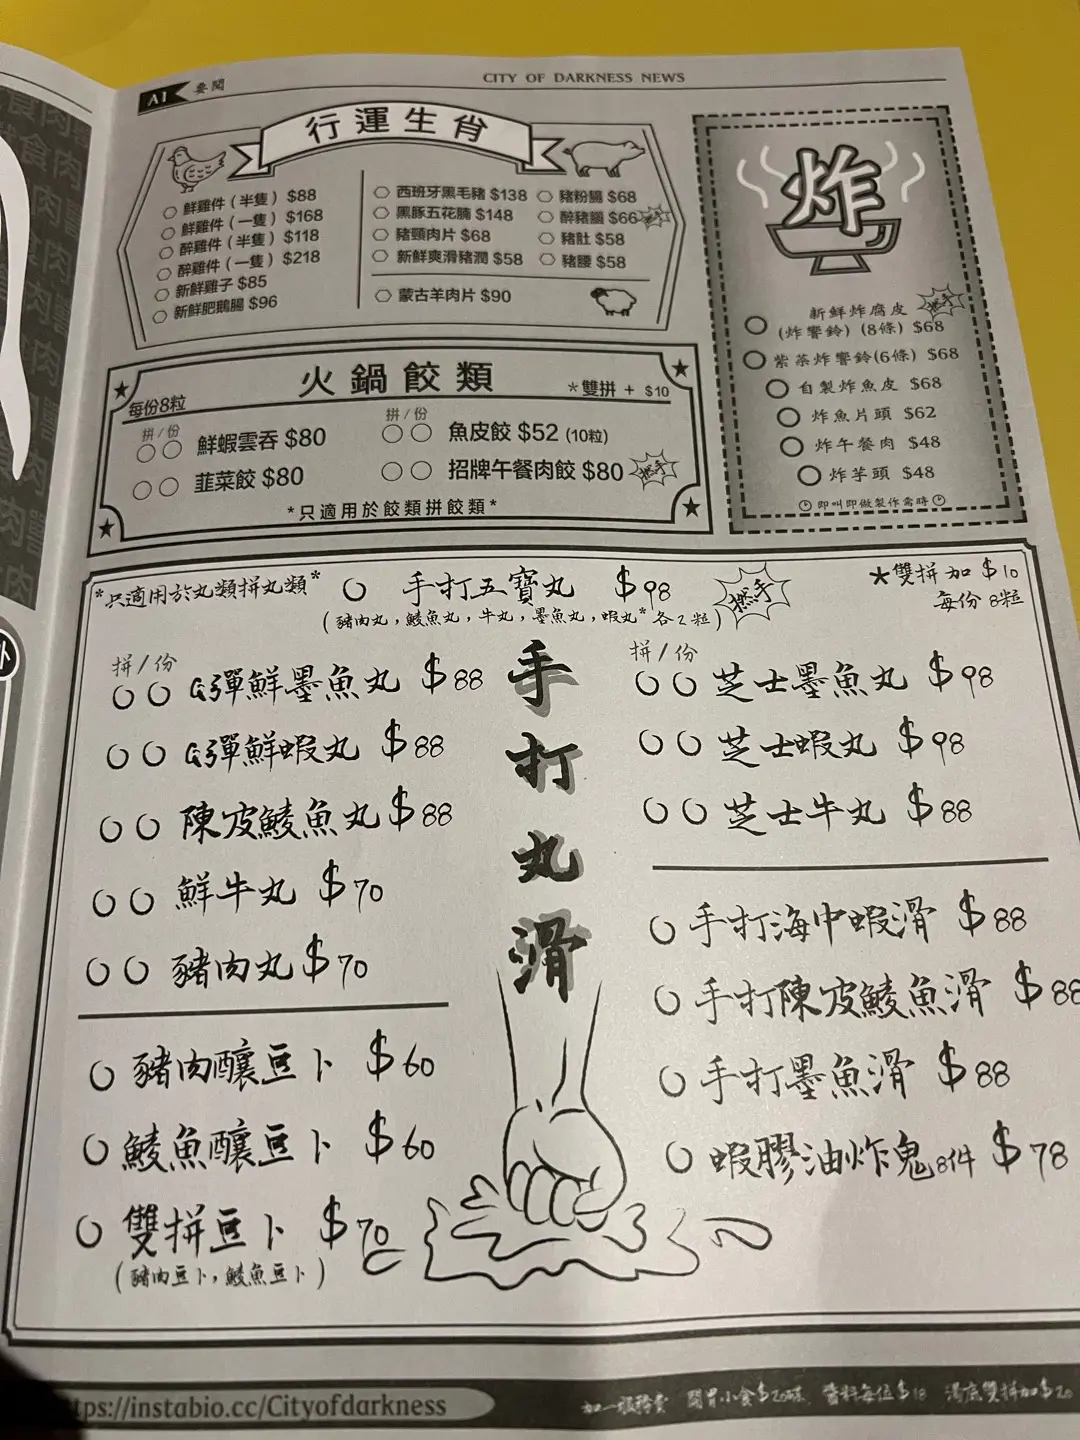 A1 要聞
CITY OF DARKNESS NEWS
行運生肖
鮮雞件(半隻) $88
鮮雞件(一隻) $168
醉雞件(半隻) $118
醉雞件(一隻) $218
新鮮雞子 $85
新鮮肥鵝腸 $96
西班牙黑毛豬 $138
黑豚五花腩 $148
豬頸肉片 $68
新鮮爽滑豬潤 $58
豬粉腸 $68
醉豬腦 $66
豬肚 $58
豬腰 $58
蒙古羊肉片 $90
炸
新鮮炸腐皮
(炸響鈴) (8條) $68
紫菜炸響鈴(6條) $68
自製炸魚皮 $68
炸魚片頭 $62
炸午餐肉 $48
炸芋頭 $48
即叫即做製作需時
火鍋餃類
*雙拼 + $10
每份8粒
拼/份
鮮蝦雲吞 $80
韮菜餃 $80
拼/份
魚皮餃 $52 (10粒)
招牌午餐肉餃 $80
*只適用於餃類拼餃類*
*只適用於丸類拼丸類*
手打五寶丸 $98
(豬肉丸,鯪魚丸,牛丸,墨魚丸,蝦丸*各2粒)
★雙拼加 $10
每份 8粒
手打丸滑
拼/份
Q彈鮮墨魚丸 $88
Q彈鮮蝦丸 $88
陳皮鯪魚丸 $88
鮮牛丸 $70
豬肉丸 $70
豬肉釀豆卜 $60
鯪魚釀豆卜 $60
雙拼豆卜 $70
(豬肉豆卜,鯪魚豆卜)
拼/份
芝士墨魚丸 $98
芝士蝦丸 $98
芝士牛丸 $88
手打海中蝦滑 $88
手打陳皮鯪魚滑 $88
手打墨魚滑 $88
蝦膠油炸鬼8件 $78
ttps://instabio.cc/Cityofdarkness
加一服務費 開胃小食$20碟 醬料每位$18 湯底雙拼加$20